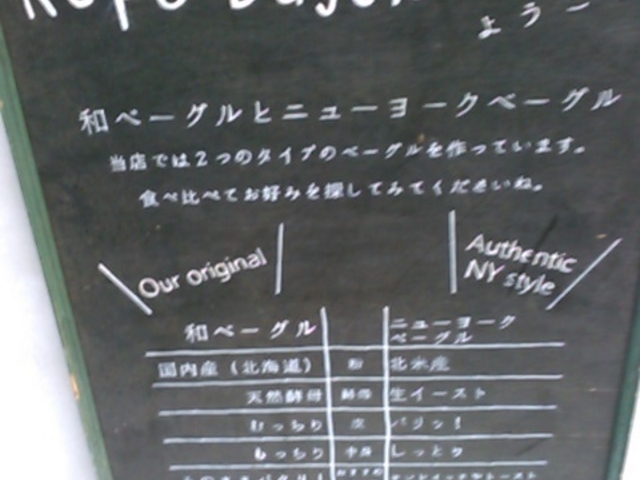 よう
和ベーグルとニューヨークベーグル
当店では2つのタイプのベーグルを作っています。
食べ比べてお好みを探してみてくださいね。
Our original
Authentic
NY style
和ベーグル
ニューヨーク
ベーグル
国内産（北海道） 粉 北米産
天然酵母 酵母 生イースト
むっちり 皮 パリッ！
もっちり 中身 しっとり
おすすめ